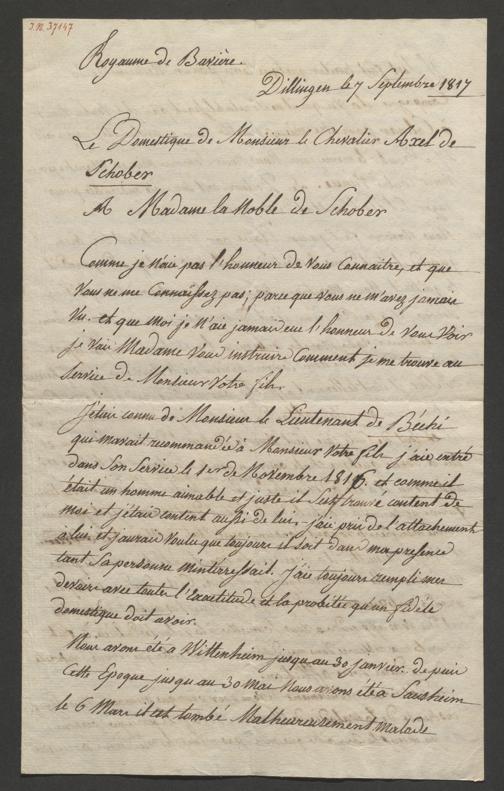 I.N. 37147
Royaume de Bavière.
Dillingen le 7 Septembre 1817
Le Domestique de Monsieur le Chevalier Axel de
Schober
A Madame la Noble de Schober
Comme je n'aie pas l'honneur de vous connaitre, et que
vous ne me connaissez pas; parce que vous ne m'avez jamais
vu. et que moi je n'aie jamais eue l'honneur de vous voir
je vais Madame vous instruire comment je me trouve au
service de Monsieur votre fils.
J'étais connu de Monsieur le Lieutenant de Béché
qui mavait recommandée à Monsieur votre fils j'aie entré
dans son service le 1er de Novembre 1816. et comme il
était un homme aimable et juste il sest trouvé content de
moi et j'étais content aussi de lui, j'aie pris de l'attachement
a lui, et j'aurais voulu que toujours il soit dans ma presence
tant sa personne minterressait. J'aie toujours rempli mes
devoirs avec toute l'exactitude et la probitée qu'un fidéle
domestique doit avoir.
Nous avons été a Wittenheim jusqu'au 30 janvier. depuis
cette Epoque jusqu'au 30 Mai nous avons été a Sausheim
le 6 Mars il est tombé Malheureusement malade